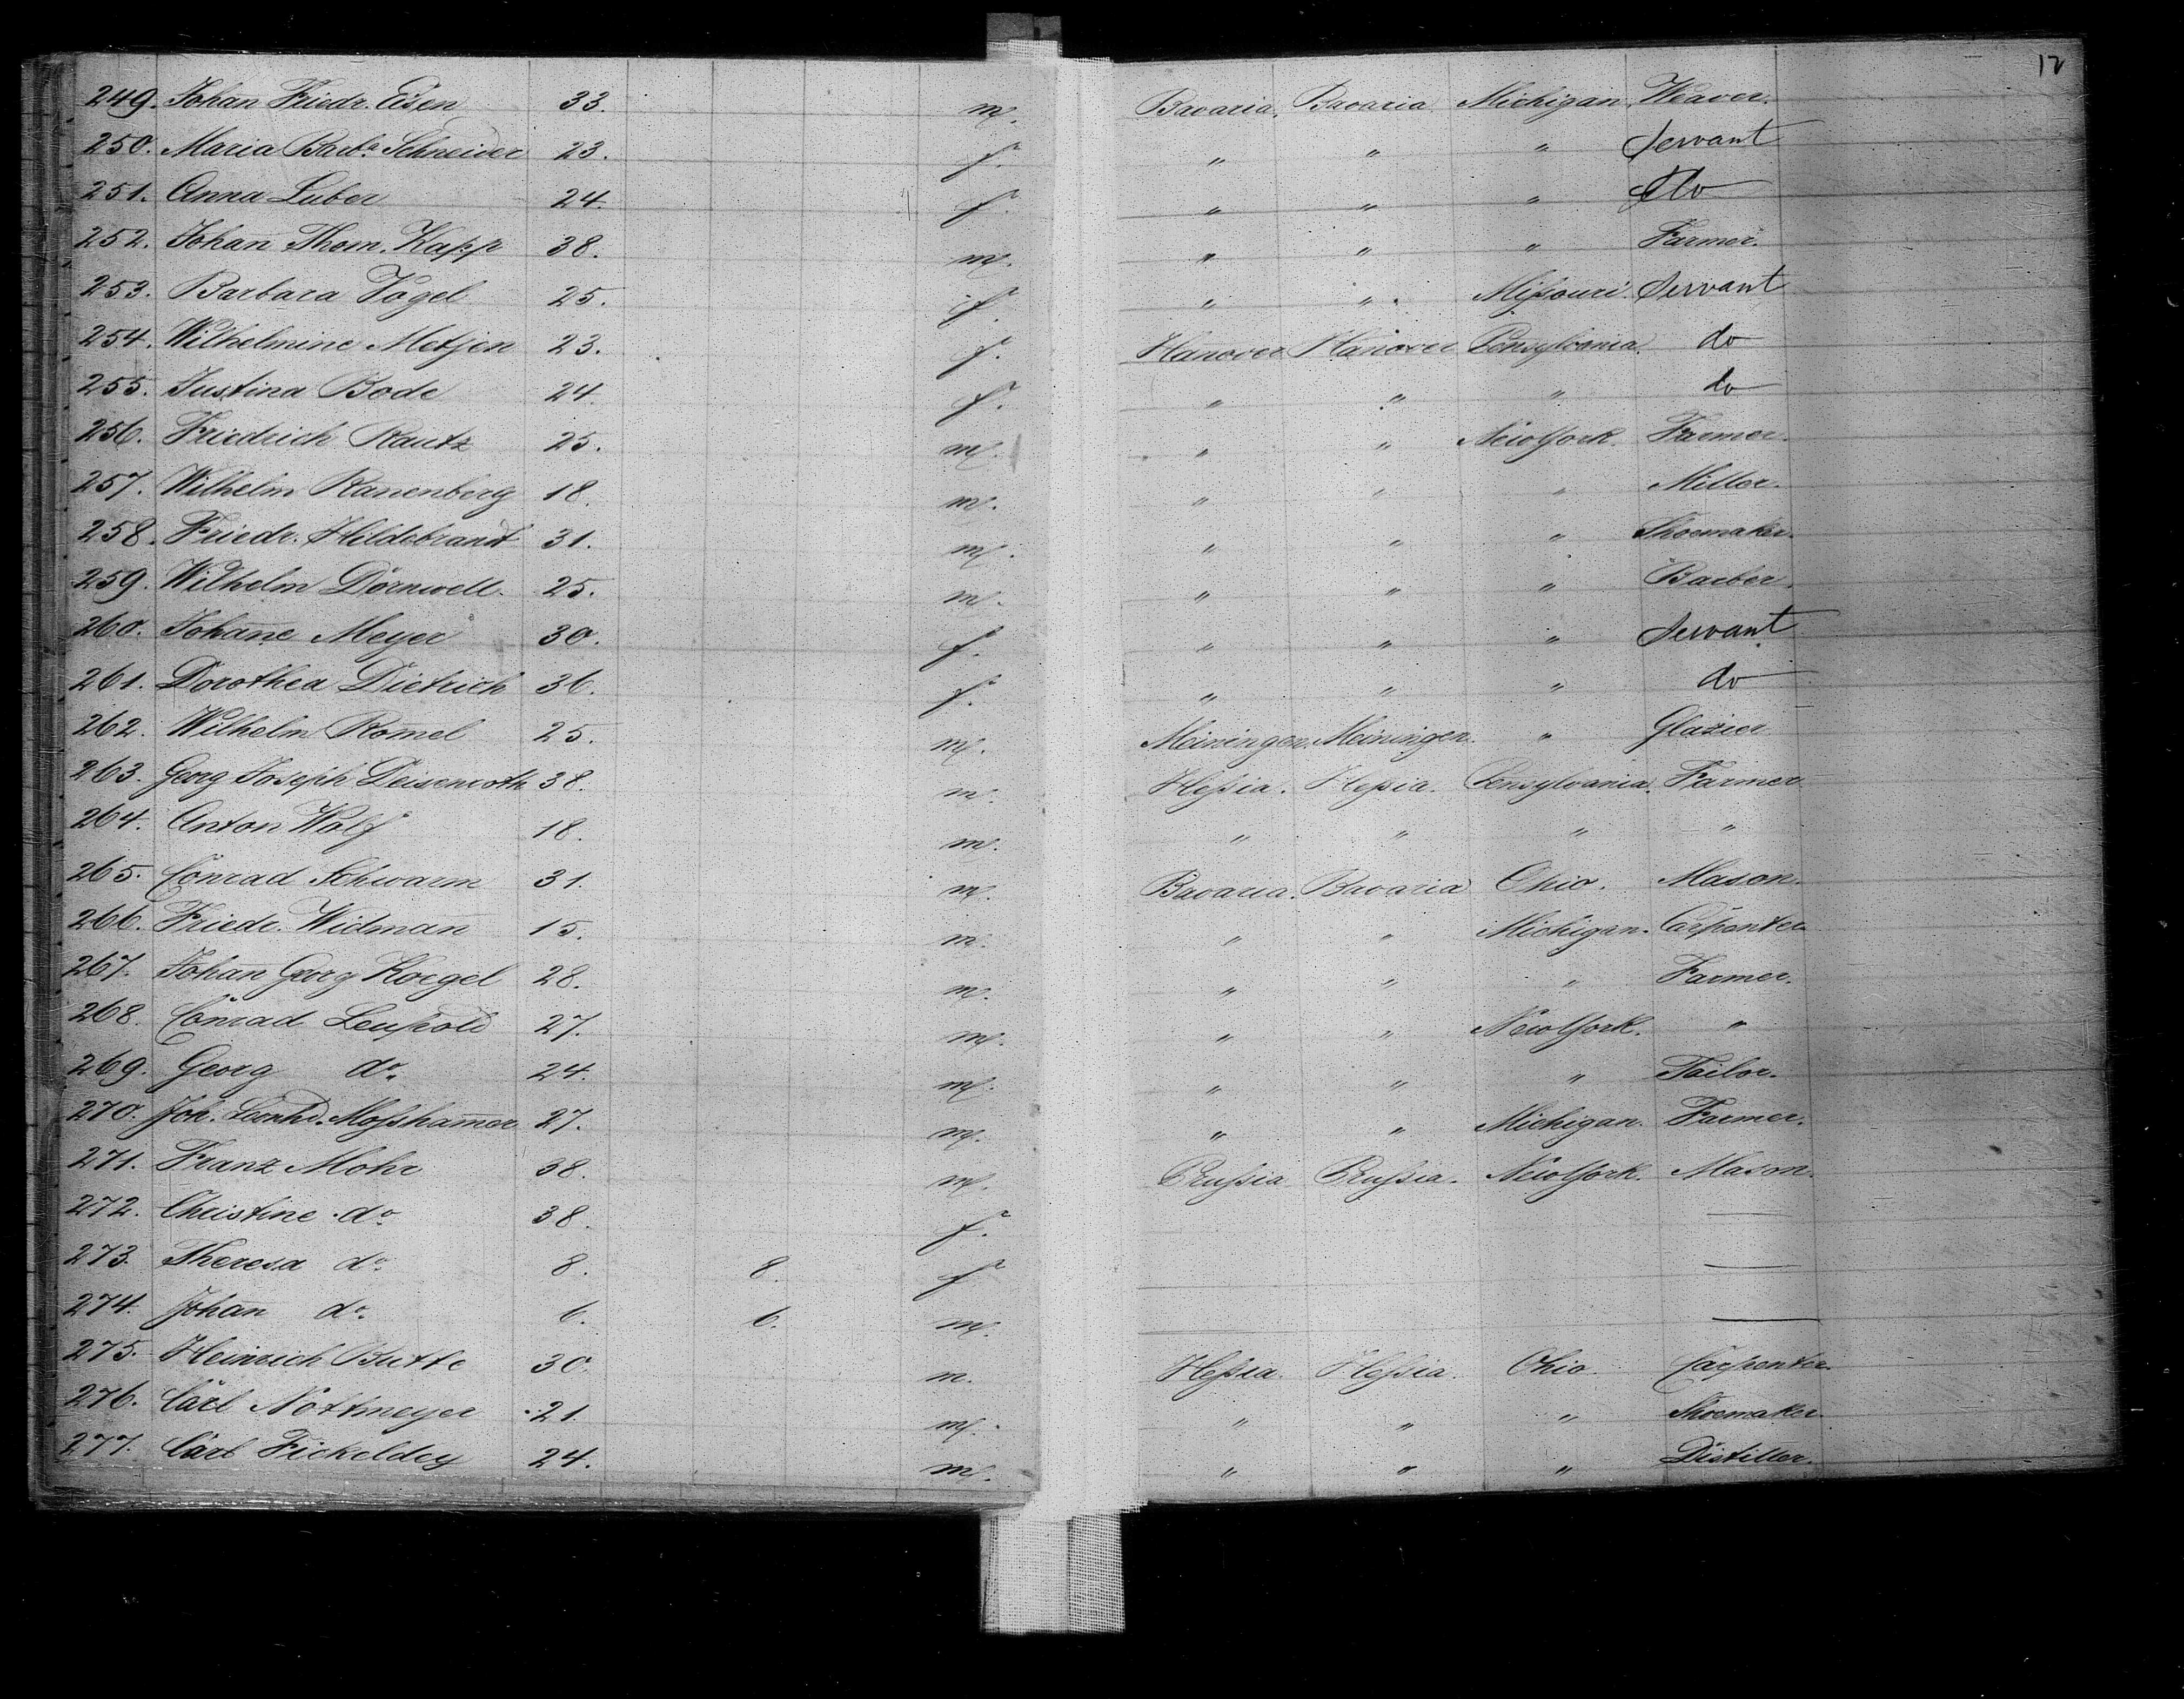 12
249. Johan Friedr. Eisen 33. m. Bavaria. Bavaria Michigan. Weaver.
250. Maria Barba. Schneider 23. f. " " " Servant
251. Anna Luber 24. f. " " " do
252. Johan Thom. Kapp 38. m. " " " Farmer.
253. Barbara Vogel 25. f. " " Mißouri. Servant
254. Wilhelmine Metjen 23. f. Hanover Hanover Pensylvania. do
255. Justina Bode 24. f. " " " do
256. Friedrich Rautz 25. m. " " New York. Farmer.
257. Wilhelm Ranenberg 18. m. " " " Miller.
258. Friedr. Hildebrandt 31. m. " " " Shoemaker.
259. Wilhelm Dörnwell. 25. m. " " " Barber.
260. Johan̄e Meyer 30. f. " " " Servant
261. Dorothea Dietrich 36. f. " " " do
262. Wilhelm Rom̄el 25. m. Meiningen. Meiningen. " Glazier
263. Georg Joseph Deisenroth 38. m. Heßia. Heßia. Pensylvania. Farmer
264. Anton Wolf 18. m. " " " "
265. Conrad Schwarm 31. m. Bavaria. Bavaria Ohio. Mason.
266. Friedr. Widman̄ 15. m. " " Michigan. Carpenter
267. Johan̄ Georg Koegel 28. m. " " " Farmer.
268. Conrad Leupold 27. m. " " New York. "
269. Georg do. 24. m. " " " Tailor.
270. Joh. Leonhd. Moßham̄er 27. m. " " Michigan. Farmer.
271. Franz Mohr 38. m. Prußia Prußia. New York. Mason.
272. Christine do. 38. f. —
273. Theresa do. 8. 8. f —
274. Johan̄ do. 6. 6. m. —
275. Heinrich Butte 30. m. Heßia. Heßia. Ohio. Carpenter.
276. Carl Nottmeyer 21. m. " " " Shoemaker.
277. Carl Fickeldey 24. m. " " " Distiller.